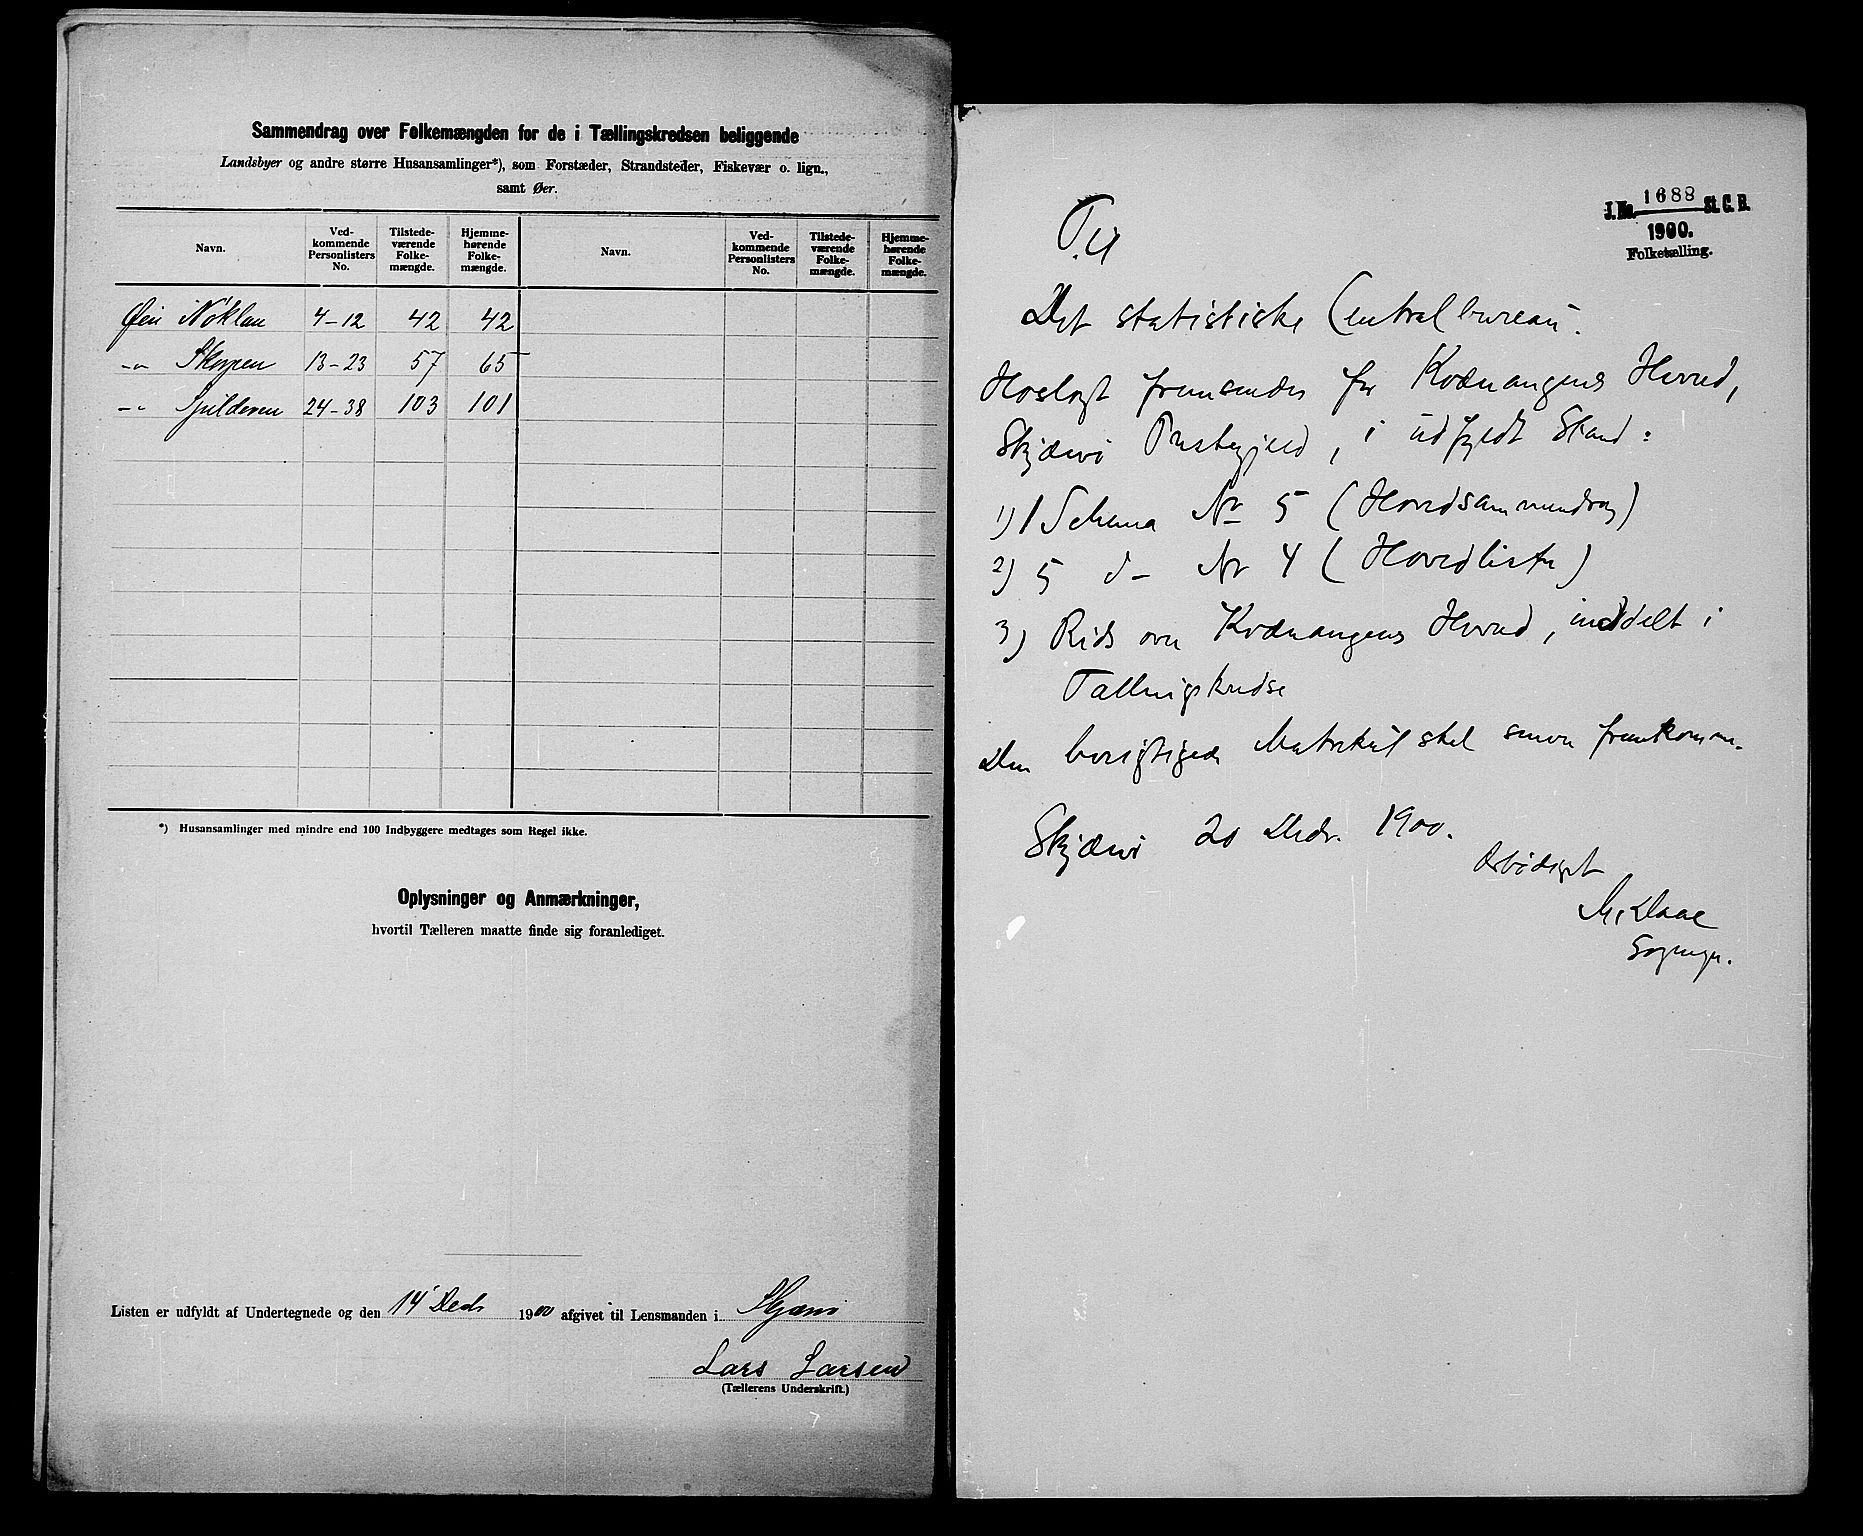 Sammendrag over Folkemængden for de i Tællingskredsen beliggende
Landsbyer og andre større Husansamlinger*), som Forstæder, Strandsteder, Fiskevær o. lign.,
samt Øer.
Navn. Ved-kommende Personlisters No. Tilstede-værende Folke-mængde. Hjemme-hørende Folke-mængde. Navn. Ved-kommende Personlisters No. Tilstede-værende Folke-mængde. Hjemme-hørende Folke-mængde.
Øen Nøklan 4-12 42 42
-"- Skorpen 13-23 57 65
-"- Spilderen 24-38 103 101
*) Husansamlinger med mindre end 100 Indbyggere medtages som Regel ikke.
Oplysninger og Anmærkninger,
hvortil Tælleren maatte finde sig foranlediget.
Listen er udfyldt af Undertegnede og den 14 Decb 1900 afgivet til Lensmanden i Skjærvø
Lars Larsen
(Tællerens Underskrift.)
J. No. 1688 St. C. B.
1900.
Folketælling.
Til
Det statistiske Centralbureau.
Hoslagt fremsendes for Kvænangens Herred,
Skjærvø Præstegjeld, i udfyldt Stand:
1) 1 Schema Nr 5 (Hovedsammendrag)
2) 5 do Nr 4 (Hovedlister)
3) Rids over Kvænangens Herred, inddelt i
Tællingskredse
Den berigtigede Matrikul skal senere fremkomme.
Skjærvø 20 Decbr. 1900.
Ærbødigst
M. Daae
Sognepr.